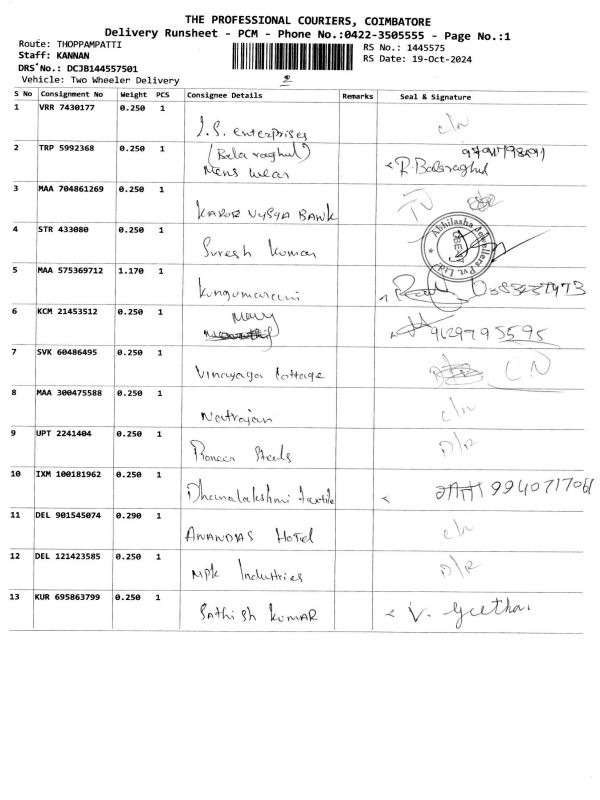 THE PROFESSIONAL COURIERS, COIMBATORE
Delivery Runsheet - PCM - Phone No.:0422-3505555 - Page No.:1
Route: THOPPAMPATTI
RS No.: 1445575
Staff: KANNAN
RS Date: 19-Oct-2024
DRS No.: DCJB144557501
Vehicle: Two Wheeler Delivery
2
S No Consignment No Weight PCS Consignee Details Remarks Seal & Signature
1 VRR 7430177 0.250 1
J.S. enterprises c/n
2 TRP 5992368 0.250 1
(Bala raghul) R. Balaraghul
Mens wear
3 MAA 704861269 0.250 1
KARUR VYSYA BANK
4 STR 433080 0.250 1
Suresh Kumar
Abhilasha Jewellers Pvt. Ltd.
5 MAA 575369712 1.170 1
6 KCM 21453512 0.250 1
Mary
9629795595
7 SVK 60486495 0.250 1
Vinayaga Cottage LN
8 MAA 300475588 0.250 1
Natrajan c/n
9 UPT 2241404 0.250 1
Pioneer Steels D/R
10 IXM 100181962 0.250 1
Dhanalakshmi textile 9940717061
11 DEL 901545074 0.290 1
ANANDAS HOTEL c/n
12 DEL 121423585 0.250 1
MPK Industries D/R
13 KUR 695863799 0.250 1
Sathish KUMAR V. Geetha.